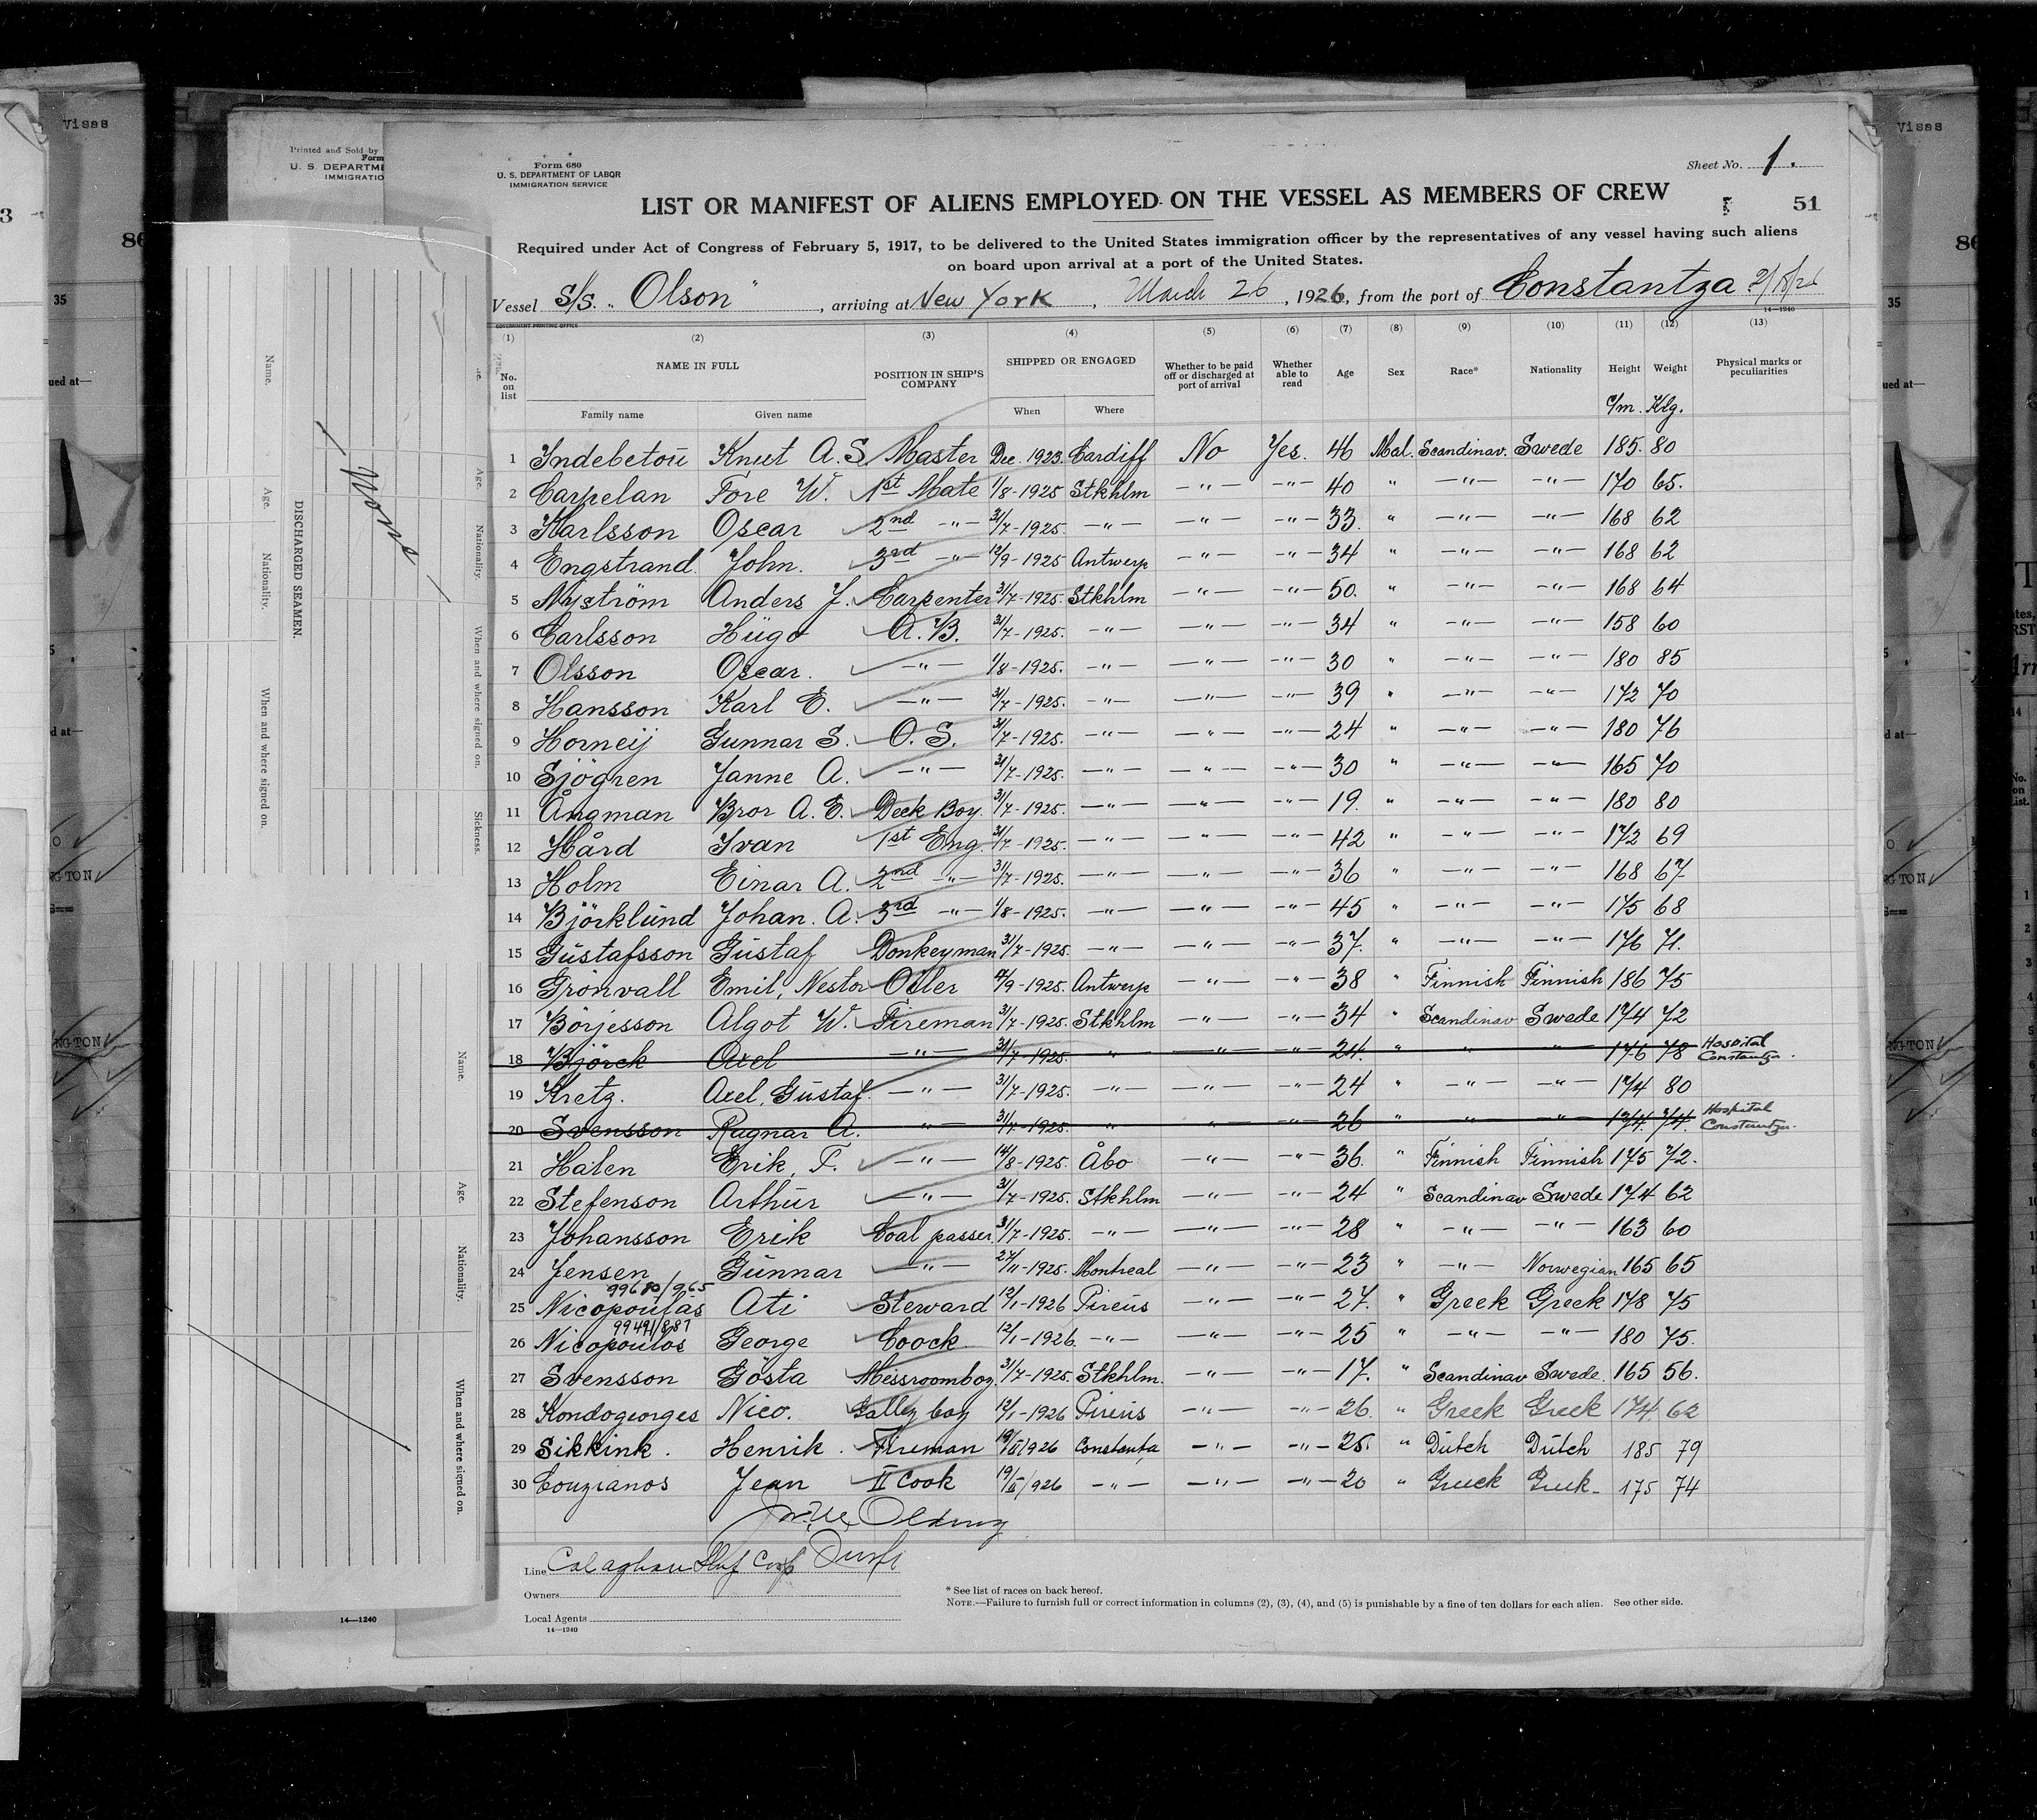 Visas
Printed and Sold by
Form
U. S. DEPARTME
IMMIGRATIO
Form 680
U. S. DEPARTMENT OF LABOR
IMMIGRATION SERVICE
Sheet No. 1.
LIST OR MANIFEST OF ALIENS EMPLOYED ON THE VESSEL AS MEMBERS OF CREW
51
Required under Act of Congress of February 5, 1917, to be delivered to the United States immigration officer by the representatives of any vessel having such aliens
on board upon arrival at a port of the United States.
Vessel S/S. „Olson", arriving at New York, March 26, 1926, from the port of Constantza
GOVERNMENT PRINTING OFFICE
14—1240
(1) (2) (3) (4) (5) (6) (7) (8) (9) (10) (11) (12) (13)
No. on list NAME IN FULL POSITION IN SHIP'S COMPANY SHIPPED OR ENGAGED Whether to be paid off or discharged at port of arrival Whether able to read Age Sex Race* Nationality Height Weight Physical marks or peculiarities
Family name Given name When Where c/m. Klg.
1 Indebetoü Knut A.S. Master Dec. 1923. Cardiff No Yes. 46 Mal. Scandinav. Swede 185. 80
2 Carpelan Tore W. 1st Mate 1/8-1925 Stkhlm —"— —"— 40 " —"— —"— 170 65.
3 Karlsson Oscar 2nd —"— 31/7-1925. —"— —"— —"— 33. " —"— —"— 168 62
4 Engstrand John. 3rd —"— 12/9-1925 Antwerp —"— —"— 34 " —"— —"— 168 62
5 Nyström Anders J. Carpenter 31/7-1925. Stkhlm —"— —"— 50. " —"— —"— 168 64
6 Carlsson Hügo A.B. 31/7-1925. —"— —"— —"— 34 " —"— —"— 158 60
7 Olsson Oscar. —"— 1/8-1925. —"— —"— —"— 30 " —"— —"— 180 85
8 Hansson Karl E. —"— 31/7-1925. —"— —"— —"— 39 " —"— —"— 172 70
9 Horneij Gunnar S. O.S. 31/7-1925. —"— —"— —"— 24 " —"— —"— 180 76
10 Sjögren Janne A. —"— 31/7-1925. —"— —"— —"— 30 " —"— —"— 165 70
11 Ångman Bror A.E. Deck Boy. 31/7-1925. —"— —"— —"— 19. " —"— —"— 180 80
12 Hård Ivan 1st Eng. 31/7-1925. —"— —"— —"— 42 " —"— —"— 172 69
13 Holm Einar A. 2nd —"— 31/7-1925. —"— —"— —"— 36 " —"— —"— 168 67
14 Björklünd Johan. A. 3rd —"— 1/8-1925. —"— —"— —"— 45 " —"— —"— 175 68
15 Güstafsson Güstaf Donkeyman 31/7-1925. —"— —"— —"— 37. " —"— —"— 176 71.
16 Grönvall Emil, Nestor Oiler /9-1925. Antwerp —"— —"— 38 " Finnish Finnish 186 75
17 Börjesson Algot W. Fireman 31/7-1925. Stkhlm —"— —"— 34 " Scandinav Swede 174 72
18 Björck Axel —"— 31/7-1925. " —"— —"— 24. " " " 176 78 Hospital Constantza.
19 Kretz. Axel, Güstaf. —"— 31/7-1925. —"— —"— —"— 24 " —"— —"— 174 80
20 Svensson Ragnar A. " 31/7-1925. " " " 26 " " " 174. 74. Hospital Constantza.
21 Halen Erik, F. —"— 14/8-1925. Åbo —"— —"— 36. " Finnish Finnish 175 72.
22 Stefenson Arthür —"— 31/7-1925. Stkhlm —"— —"— 24 " Scandinav Swede 174 62
23 Johansson Erik Coal passer. 31/7-1925. —"— —"— —"— 28 " —"— —"— 163 60
24 Jensen Günnar —"— 27/11-1925. Montreal —"— —"— 23 " —"— Norwegian 165 65
99680/965
25 Nicopoulas Ati Steward 12/1-1926 Pireüs —"— —"— 27. " Greek Greek 178 75
99491/887
26 Nicopoulos George Coock 12/1-1926. —"— —"— —"— 25 " —"— —"— 180 75.
27 Svensson Gösta Messroomboy. 31/7-1925. Stkhlm. —"— —"— 17. " Scandinav Swede. 165 56.
28 Kondogeorges Nico. Galley boy 12/1-1926 Pireüs —"— —"— 26. " Greek Greek 174 62
29 Sikkink. Henrik. Fireman 19/II/926 Constanţa —"— —"— 25. " Dütch Dütch 185 79
30 Couzianos Jean II Cook 19/II/926 —"— —"— —"— 20 " Greek Greek 175 74
Line
Owners
Local Agents
14—1240
* See list of races on back hereof.
NOTE.—Failure to furnish full or correct information in columns (2), (3), (4), and (5) is punishable by a fine of ten dollars for each alien. See other side.
DISCHARGED SEAMEN.
Name. Age. Nationality. When and where signed on.
Age. Nationality. When and where signed on. Sickness.
Name. Age. Nationality. When and where signed on.
— None —
14—1240
Visas
35
ued at—